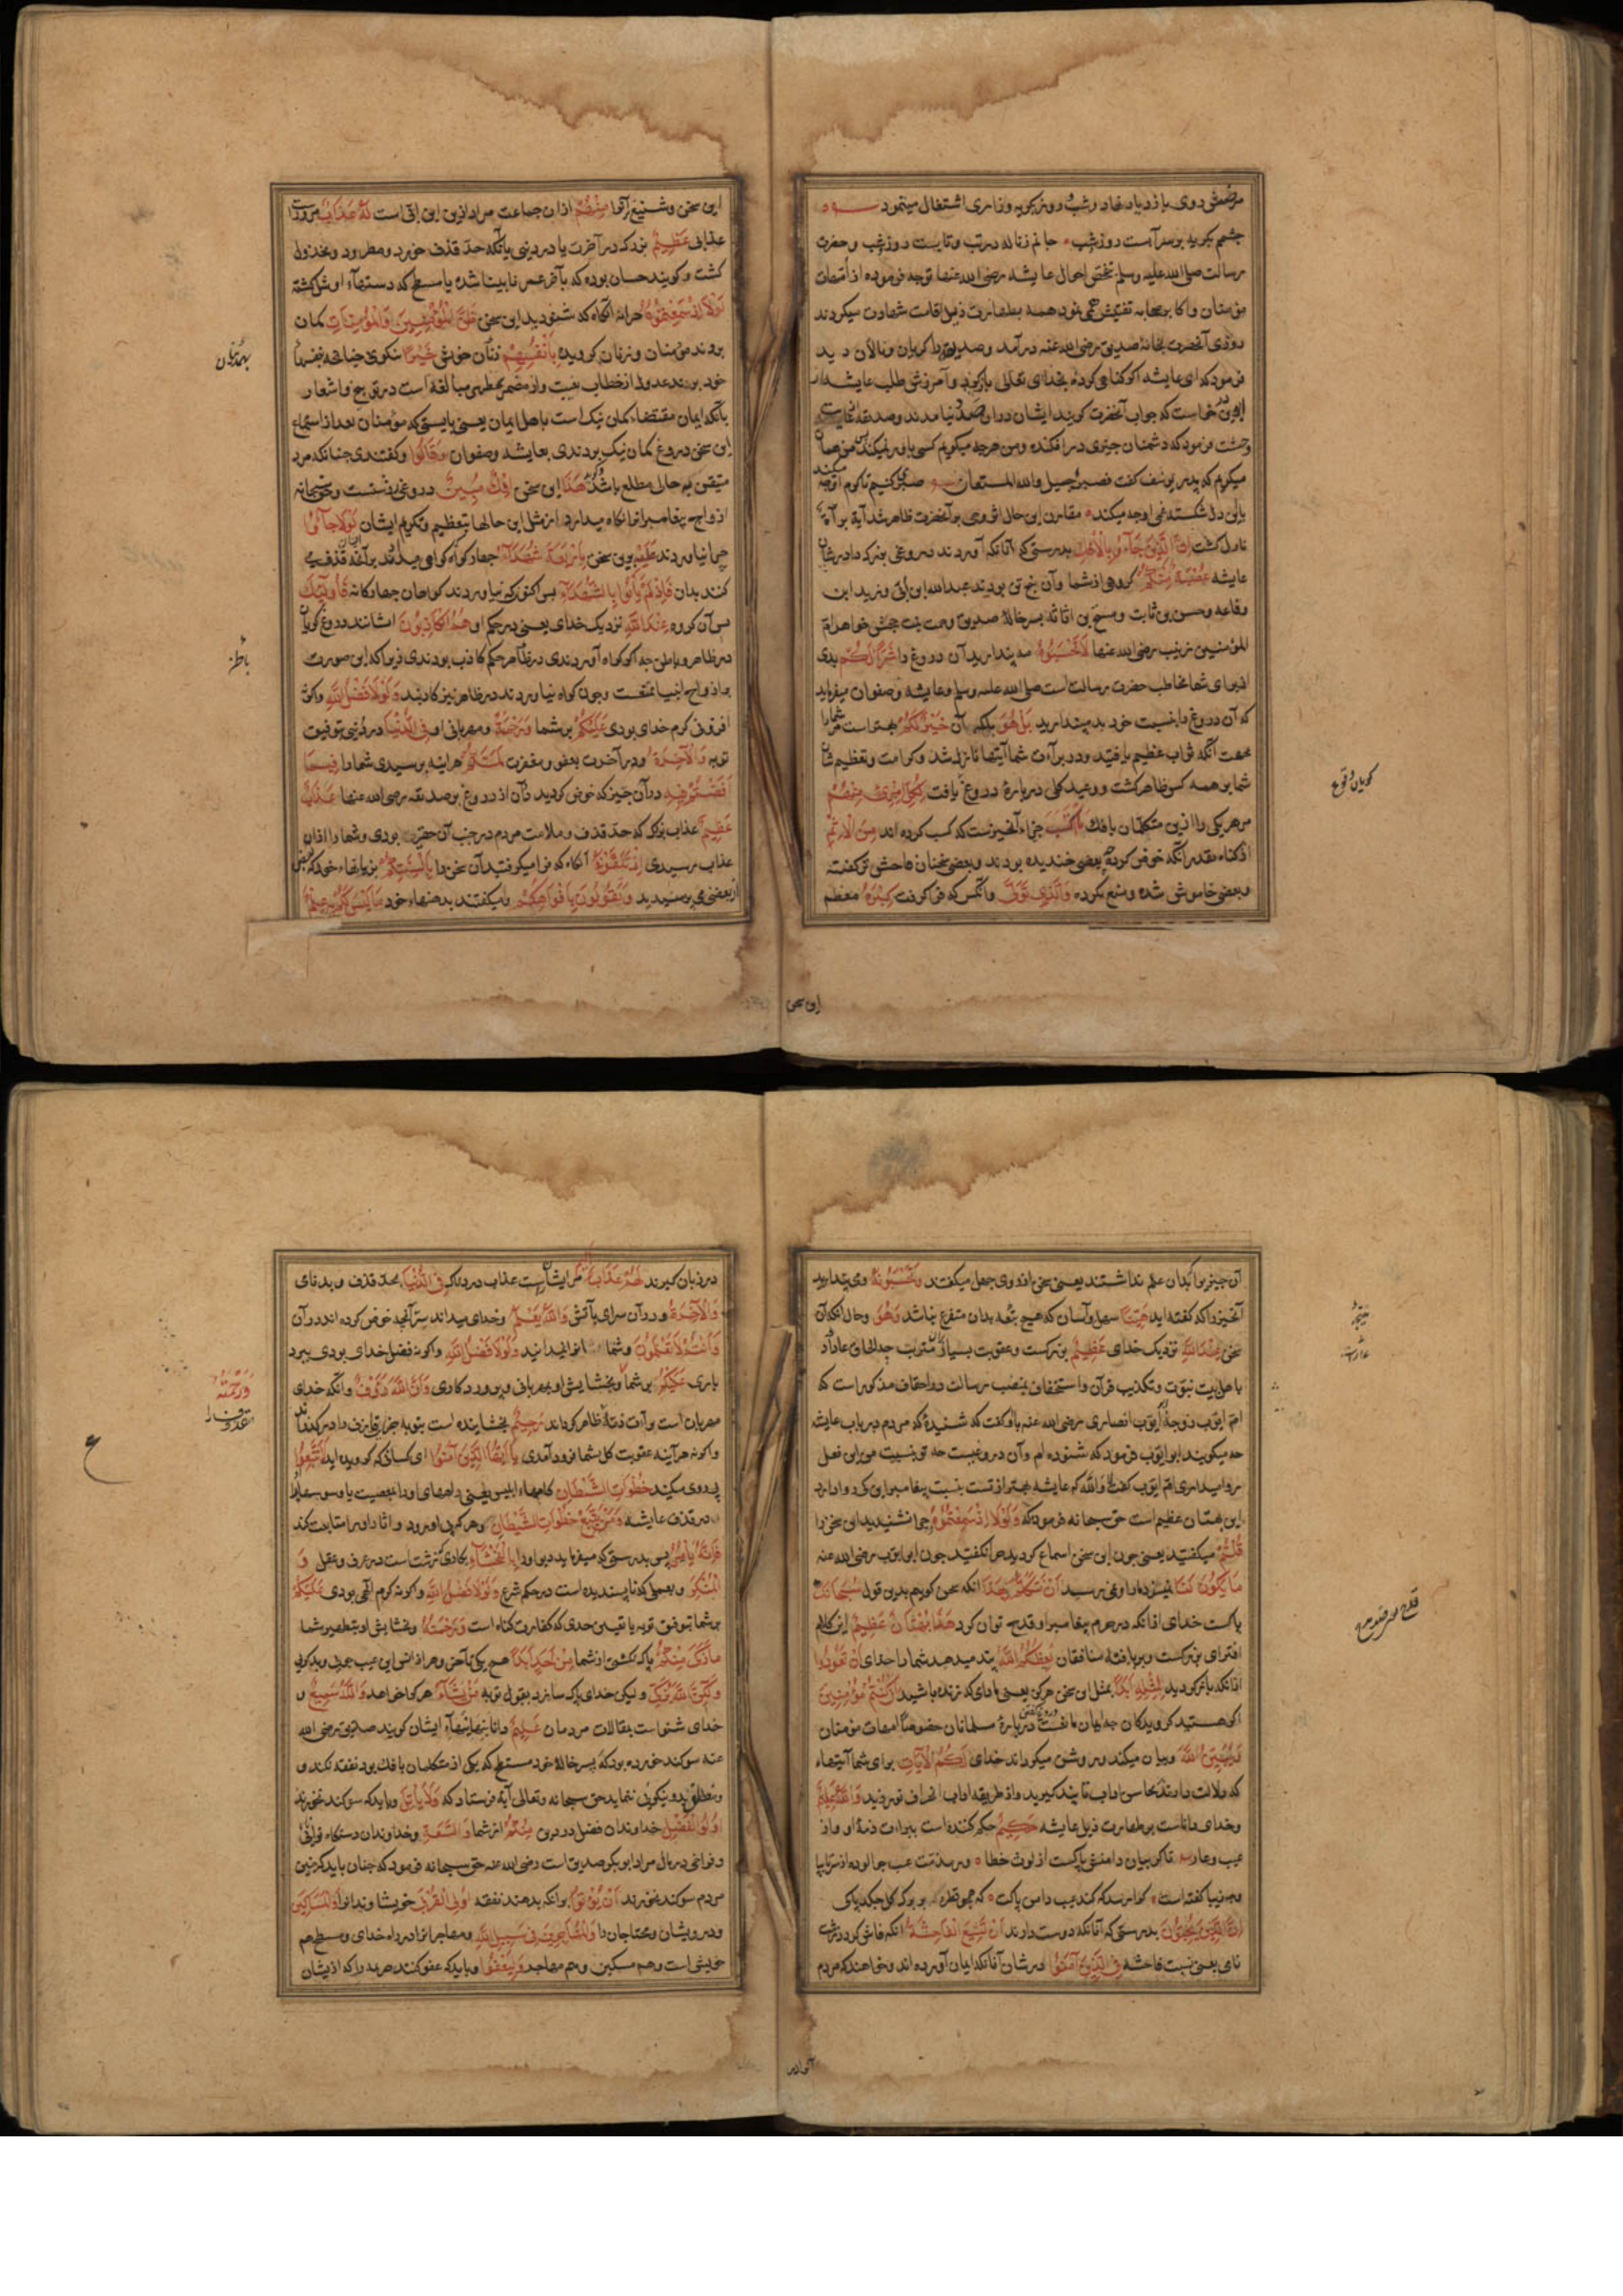 مرضش روی بازدیاد نهاد و شب و روز بگریه و زاری اشتغال مینمود
چشمم بگریه بر سر آبست روز و شب جانم ز ناله در تب و تابست روز و شب و حضرت
رسالت صلی الله علیه وسلم تفحص احوال عایشه رضی الله عنها توجه فرموده از امهات
مؤمنان و اکابر صحابه تفتیش می نمود همه بطهارت ذیل او اقامت شهادت میکردند
روزی آنحضرت بخانهٔ صدیق رضی الله عنه درآمد و صدیقه را گریان و نالان دید
فرمود که ای عایشه اگر گناهی کردهٔ بخدای تعالی بازگرد و آمرزش طلب عایشه از
ابوین خواست که جواب آنحضرت گویند ایشان دران صدد نیامدند و صدیقه
وحشت فرمود که دشمنان چیزی در افکنده و من هرچه میگویم کسی باور نمیکند من همان
میگویم که پدر یوسف گفت فصبر جمیل والله المستعان صبری کنیم تا کرم او چه میکند
با این دل شکسته غم او چه میکند مقارن این حال اثر وحی بر آنحضرت ظاهر شد آیة برآءة
نازل گشت إن الذین جآءو بالإفك بدرستی که آنانکه آوردند دروغی بزرگ در شان
عایشه عصبة منکم گروهی از شما و آن پنج تن بودند عبدالله ابن ابی و زید ابن
رفاعه و حسن بن ثابت و مسطح بن اثاثه پسر خالهٔ صدیق و حمنه بنت جحش خواهر ام
المؤمنین زینب رضی الله عنها لا تحسبوه مه پندارید آن دروغ را شرا لکم بدی
از برای شما مخاطب حضرت رسالت است صلی الله علیه وسلم و عایشه و صفوان میفرماید
که آن دروغ را نسبت خود بد مپندارید بل هو بلکه آن خیر لکم بهتر است مر شما را
بجهت آنکه ثواب عظیم یافتید و در برآءت شما آیتها نازل شد و کرامت و تعظیم شان
شما بر همه کس ظاهر گشت و وعید کلی دربارهٔ دروغ یافت لکل امرئ منهم
مر هر یکی را ازین متکلمان بافك ما اکتسب جزاء آنچیزست که کسب کرده اند من الإثم
از گناه بقدر آنکه خوض کرده بعضی خندیده بودند و بعضی سخنان فاحش تر گفته
و بعضی خاموش شده و منع نکرده والذی تولی و آنکس که فرا گرفت کبره معظم
گویان وقوع
این سخن
این سخن و شنیع را منهم ازان جماعت مراد ازین ابن ابی است له عذاب مر وراست
عذابی عظیم بزرک در آخرت یا در دنیی یا آنکه حد قذف خورد و مطرود و مخذول
گشت و گویند حسان بوده که بآخر عمر نابینا شده یا مسطح که دستهاء او شل گشته
لولا إذ سمعتموه چرا نه آنگاه که شنودید این سخن ظن المؤمنون والمؤمنات گمان
بردند مؤمنان و زنان گرویده بأنفسهم زنان خویش خیرا نیکوئی چنانچه بنفسهاء
خود بردند عدول از خطاب بغیبت و از مضمر بمظهر مبالغه است در توبیخ و اشعار
بآنکه ایمان مقتضاء گمان نیک است باهل ایمان یعنی بایستی که مؤمنان بعد از استماع
این سخن دروغ گمان نیک بردندی بعایشه و صفوان وقالوا و گفتندی چنانکه مرد
متیقن بر حال مطلع باشد هذا این سخن إفك مبین دروغی روشنست و حق سبحانه
ازواج پیغامبرانرا نگاه میدارد از مثل این حالها بتعظیم و تکریم ایشان لولا جآءو
چرا نیاوردند علیه برین سخن بأربعة شهدآء چهار گواه گواهی میدادند بر آنچه قذف می
کنند بدان فإذ لم یأتوا بالشهدآء پس اکنون که نیاوردند گواهان چهارگانه فأولئك
پس آن گروه عند الله نزدیک خدای یعنی در حکم او هم الکاذبون ایشانند دروغ گویان
در ظاهر و باطن چه اگر گواه آوردندی در ظاهر حکم کاذب نبودندی زیرا که این صورت
بر ازواج انبیا ممتنعست و چون گواه نیاوردند در ظاهر نیز کاذبند ولولا فضل الله و اگرنه
افزونی کرم خدای بودی علیکم بر شما ورحمته و مهربانی او فی الدنیا در دنیی بتوفیق
توبه والآخرة و در آخرت بعفو و مغفرت لمسکم هر اینه برسیدی شما را فیما
أفضتم فیه در آن چیز که خوض کردید در آن از دروغ بر صدیقه رضی الله عنها عذاب
عظیم عذاب بزرک که حد قذف و ملامت مردم در جنب آن حقیر بودی و شما را ازان
عذاب برسیدی إذ تلقونه آنگاه که فرا میگرفتید آن سخن را بألسنتکم بزبانهاء خود که بعضی
از بعضی می پرسیدید وتقولون بأفواهکم و میگفتند بدهنهاء خود ما لیس لکم به علم
بهمدیگران
باطن
آن چیز را که بدان علم نداشتند یعنی سخن از روی جهل میگفتند وتحسبونه و می پندارید
آنچیز را که گفته اید هینا سهل و آسان که هیچ تبعه بدان متفرع نباشد وهو و حال آنکه آن
سخن عند الله نزدیک خدای عظیم بزرکست و عقوبت بسیار بران مترتب چه الحاق عار
باهل بیت نبوت و تکذیب قرآن و استخفاف بمنصب رسالت در احقاف مذکور است که
ام ایوب زوجهٔ ابو ایوب انصاری رضی الله عنه باو گفت که شنیدهٔ که مردم در باب عایشه
چه میگویند ابو ایوب فرمود که شنوده ام و آن دروغیست چه تو نسبت من این فعل
روا میداری ام ایوب گفت لا والله که عایشه بهتر از تست بنسبت پیغامبر این کی روا دارد
این بهتان عظیم است حق سبحانه فرمود که ولولا إذ سمعتموه چرا نشنیدید این سخن را
قلتم میگفتید یعنی چون این سخن استماع کردید چرا نگفتید چون ابو ایوب رضی الله عنه
ما یکون لنا نیسزد ما را و نمی رسد أن نتکلم بهذا آنکه سخن گوییم بدین قول سبحانك
پاکست خدای از آنکه در حرم پیغامبر او قدح توان کرد هذا بهتان عظیم این کلام
افترای بزرکست و بر بافتهٔ منافقان یعظکم الله پند میدهد شما را خدای أن تعودوا
از آنکه باز گردید لمثله أبدا بمثل این سخن هرگز یعنی مادامی که زنده باشید إن کنتم مؤمنین
اگر هستید گرویدگان چه ایمان مانعست از دروغ گفتن دربارهٔ مسلمانان خصوصا امهات مؤمنان
ویبین الله و بیان میکند و روشن میگرداند خدای لکم الآیات برای شما آیتهاء
که دلالت دارند بمحاسن اداب تا پند گیرید و از طریقهٔ ادب انحراف نورزید والله علیم
و خدای داناست بر طهارت ذیل عایشه حکیم حکم کننده است ببراءت ذمهٔ او و از
عیب و عار تا گریبان دامنش پاکست از لوث خطا
إن الذین یحبون بدرستی که آنانکه دوست دارند أن تشیع الفاحشة آنکه فاش گردد زشت
نامی یعنی نسبت فاحشه فی الذین آمنوا در شان آنانکه ایمان آورده اند و خواهند که مردم
نتیجه
آنرا در
در زبان گیرند لهم عذاب مر ایشان راست عذاب دردناک فی الدنیا بحد قذف و بدنامی
والآخرة و در آن سرای بآتش والله یعلم و خدای میداند سر آنچه خوض کرده اند در آن
وأنتم لا تعلمون و شما آنرا نمیدانید ولولا فضل الله و اگرنه فضل خدای بودی ببرد
باری علیکم بر شما و بخشایش او بمهربانی و پروردگاری وأن الله رؤف و آنکه خدای
مهربان است و آن ذمه ظاهر گرداند رحیم بخشاینده است بتوبه
و اگرنه هر آینه عقوبت کلی بشما فرود آمدی یا أیها الذین آمنوا ای کسانی که گرویده اید لا تتبعوا
پی روی مکنید خطوات الشیطان گامهاء ابلیس یعنی
در قذف عایشه ومن یتبع خطوات الشیطان و هر که پی او رود و اثار او را متابعت کند
فإنه یأمر پس بدرستی که میفرماید دیو او را بالفحشآء بکاری که زشت است در عرف و عقل و
المنکر و بعملی که ناپسندیده است در حکم شرع ولولا فضل الله و اگرنه کرم الهی بودی علیکم
بر شما بتوفیق توبه یا تعیین حدی که کفارت گناه است ورحمته و بخشایش او بتطهیر شما
ما زکی منکم پاک نگشتی از شما من أحد أبدا هیچ یکی تا آخر دهر از
ولکن الله یزکی و لیکن خدای پاک سازد بقبول توبه من یشآء هر کرا خواهد والله سمیع و
خدای شنواست بمقالات مردمان علیم دانا بنیتهاء ایشان گویند صدیق رضی الله
عنه سوگند خورده بود که پسر خالهٔ خود مسطح که یکی از متکلمان بافك بود نفقه نکند و
مطلقا بدو نیکویی ننماید حق سبحانه و تعالی آیة فرستاد که ولا یأتل و باید که سوگند نخورند
أولوا الفضل خداوندان فضل در دین منکم از شما والسعة و خداوندان دستگاه توانگی
و فراخی در مال مراد ابو بکر صدیق است رضی الله عنه حق سبحانه فرمود که چنان باید که چنین
مردم سوگند نخورند أن یؤتوا برآنکه بدهند نفقه أولی القربی خویشاوندانرا والمساکین
و درویشان و محتاجان را والمهاجرین فی سبیل الله و مهاجرانرا در راه خدای و مسطح هم
خویش است و هم مسکین و هم مهاجر ولیعفوا و باید که عفو کنند جریمه را که از ایشان
ورحمته
ع